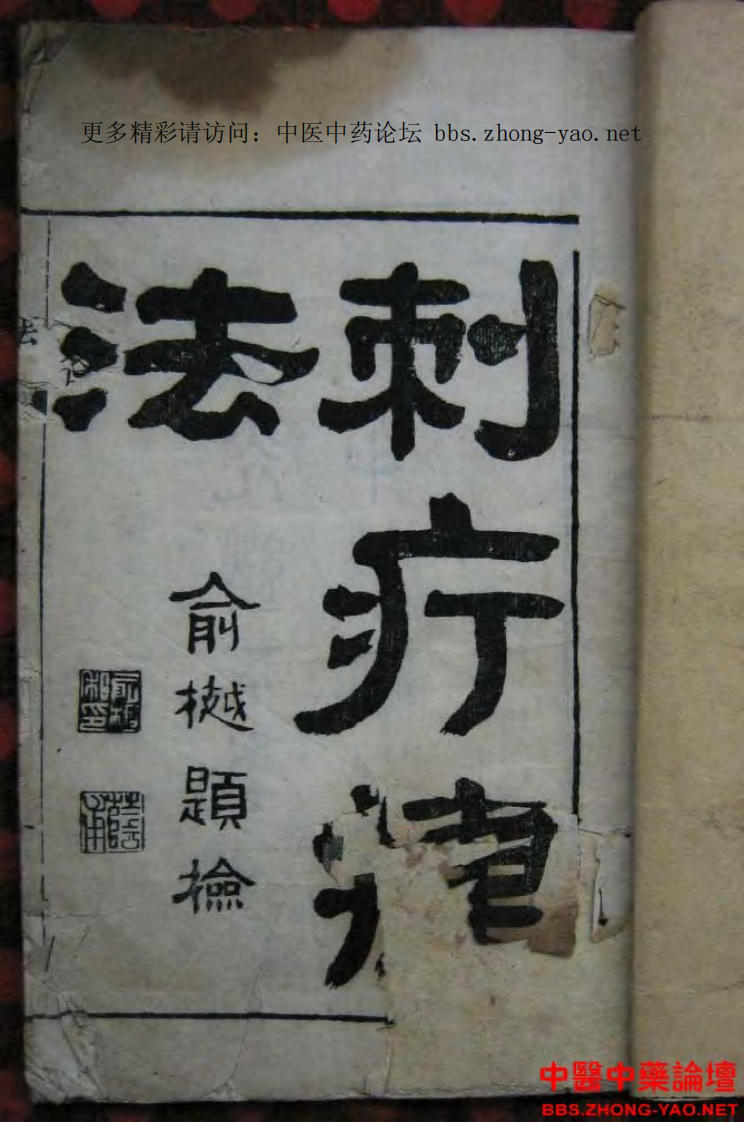 更多精彩请访问：中医中药论坛 bbs.zhong-yao.net
刺疔捷
法
俞樾題檢
蔭甫
中醫中藥論壇
BBS.ZHONG-YAO.NET